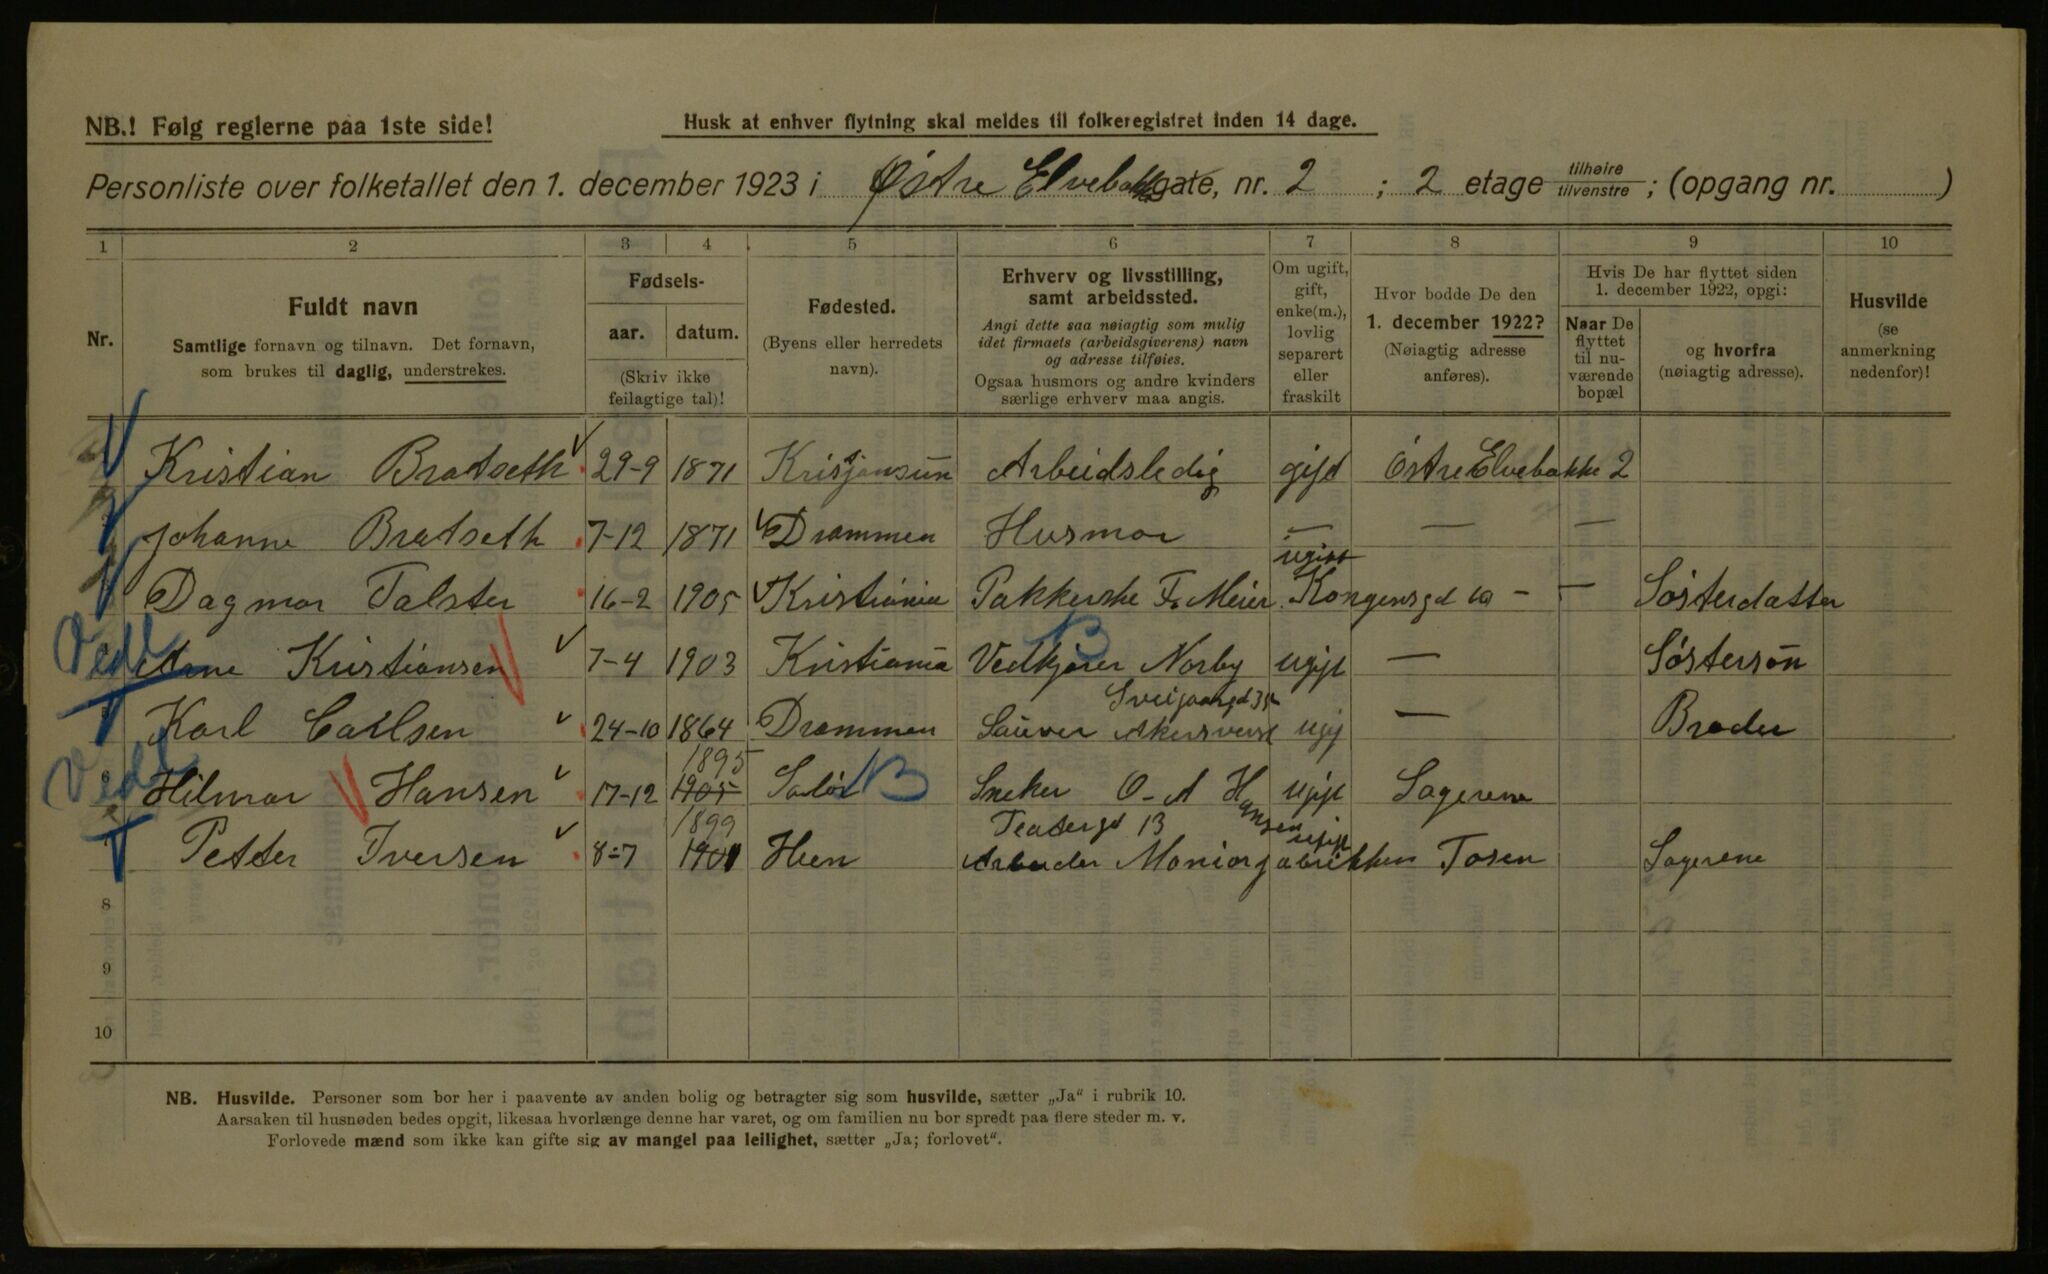 NB.! Følg reglerne paa 1ste side!
Husk at enhver flytning skal meldes til folkeregistret inden 14 dage.
Personliste over folketallet den 1. december 1923 i Østre Elvebakke gate, nr. 2 ; 2 etage tilhøire/tilvenstre ; (opgang nr. )
1 2 3 4 5 6 7 8 9 10
Nr.
Fuldt navn
Samtlige fornavn og tilnavn. Det fornavn,
som brukes til daglig, understrekes.
Fødsels-
aar. datum.
(Skriv ikke
feilagtige tal)!
Fødested.
(Byens eller herredets
navn).
Erhverv og livsstilling,
samt arbeidssted.
Angi dette saa nøiagtig som mulig
idet firmaets (arbeidsgiverens) navn
og adresse tilføies.
Ogsaa husmors og andre kvinders
særlige erhverv maa angis.
Om ugift,
gift,
enke(m.),
lovlig
separert
eller
fraskilt
Hvor bodde De den
1. december 1922?
(Nøiagtig adresse
anføres).
Hvis De har flyttet siden
1. december 1922, opgi:
Naar De
flyttet
til nu-
værende
bopæl
og hvorfra
(nøiagtig adresse).
Husvilde
(se
anmerkning
nedenfor)!
Kristian Bratseth 29-9 1871 Kristjansun Arbeidsledig gift Østre Elvebakke 2
Johanne Bratseth 7-12 1871 Drammen Husmor — — —
ugift
Dagmar Falster 16-2 1905 Kristiania Pakkerske Fr Meier Kongensgd 10 - — Søsterdatter
Vedl
Arne Kristiansen 7-4 1903 Kristiania Vedkjører Norby ugift — Søstersøn
B
Sveigaargd 35
5 Karl Carlsen 24-10 1864 Drammen Akersverst ugif — Broder
Vedl
1895
6 Hilmar Hansen 17-12 1905 Solør B Sneker O-A Hansen ugift Sagerene
1899 Teatergt 13 ugift
7 Petter Iversen 8-7 1901 Hen Arbeider Moniorfabrikken Tosen Sagerene
8
9
10
NB. Husvilde. Personer som bor her i paavente av anden bolig og betragter sig som husvilde, sætter „Ja“ i rubrik 10.
Aarsaken til husnøden bedes opgit, likesaa hvorlænge denne har varet, og om familien nu bor spredt paa flere steder m. v.
Forlovede mænd som ikke kan gifte sig av mangel paa leilighet, sætter „Ja; forlovet“.